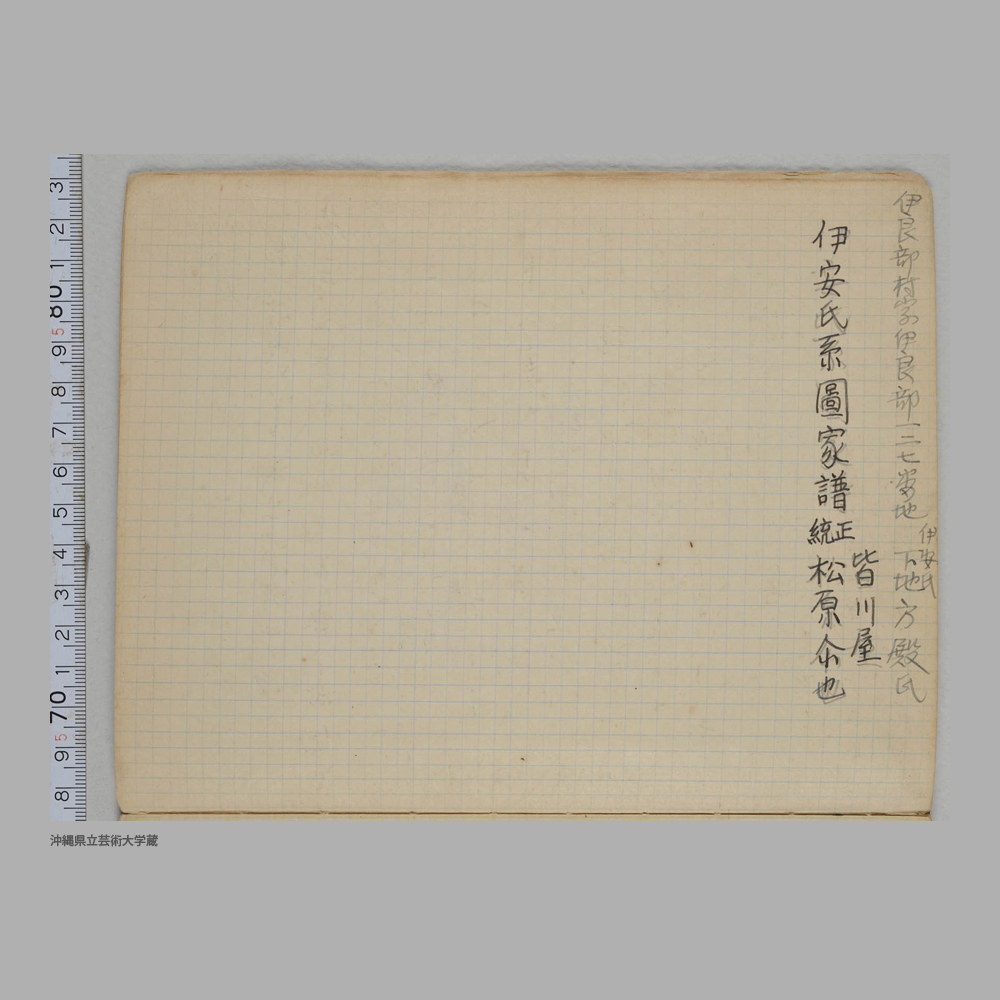 伊良部村字伊良部一二七番地
伊安氏
下地方殿氏
伊安氏系圖家譜
正統
皆川屋
松原 也
沖縄県立芸術大学蔵
3 2 1 80 5 9 8 7 6 5 4 3 2 1 70 5 9 8